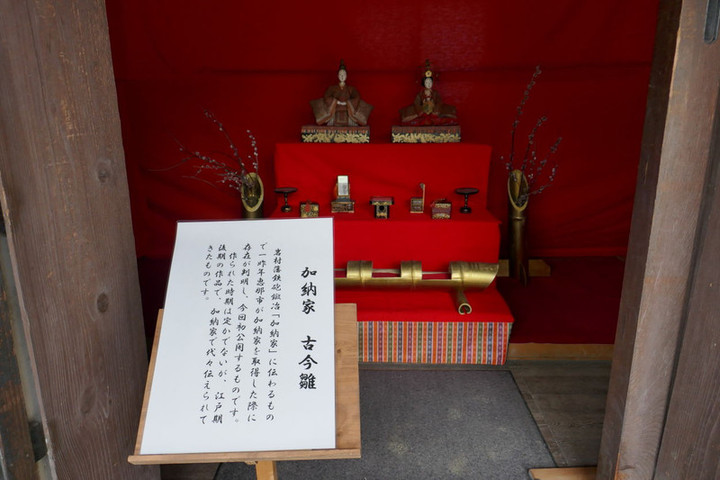 加納家　古今雛
岩村藩鉄砲鍛冶「加納家」に伝わるもの
で一昨年恵那市が加納家を取得した際に
存在が判明し、今回初公開するものです。
作られた時期は定かでないが、江戸期
後期の作品で、加納家で代々伝えられて
きたものです。